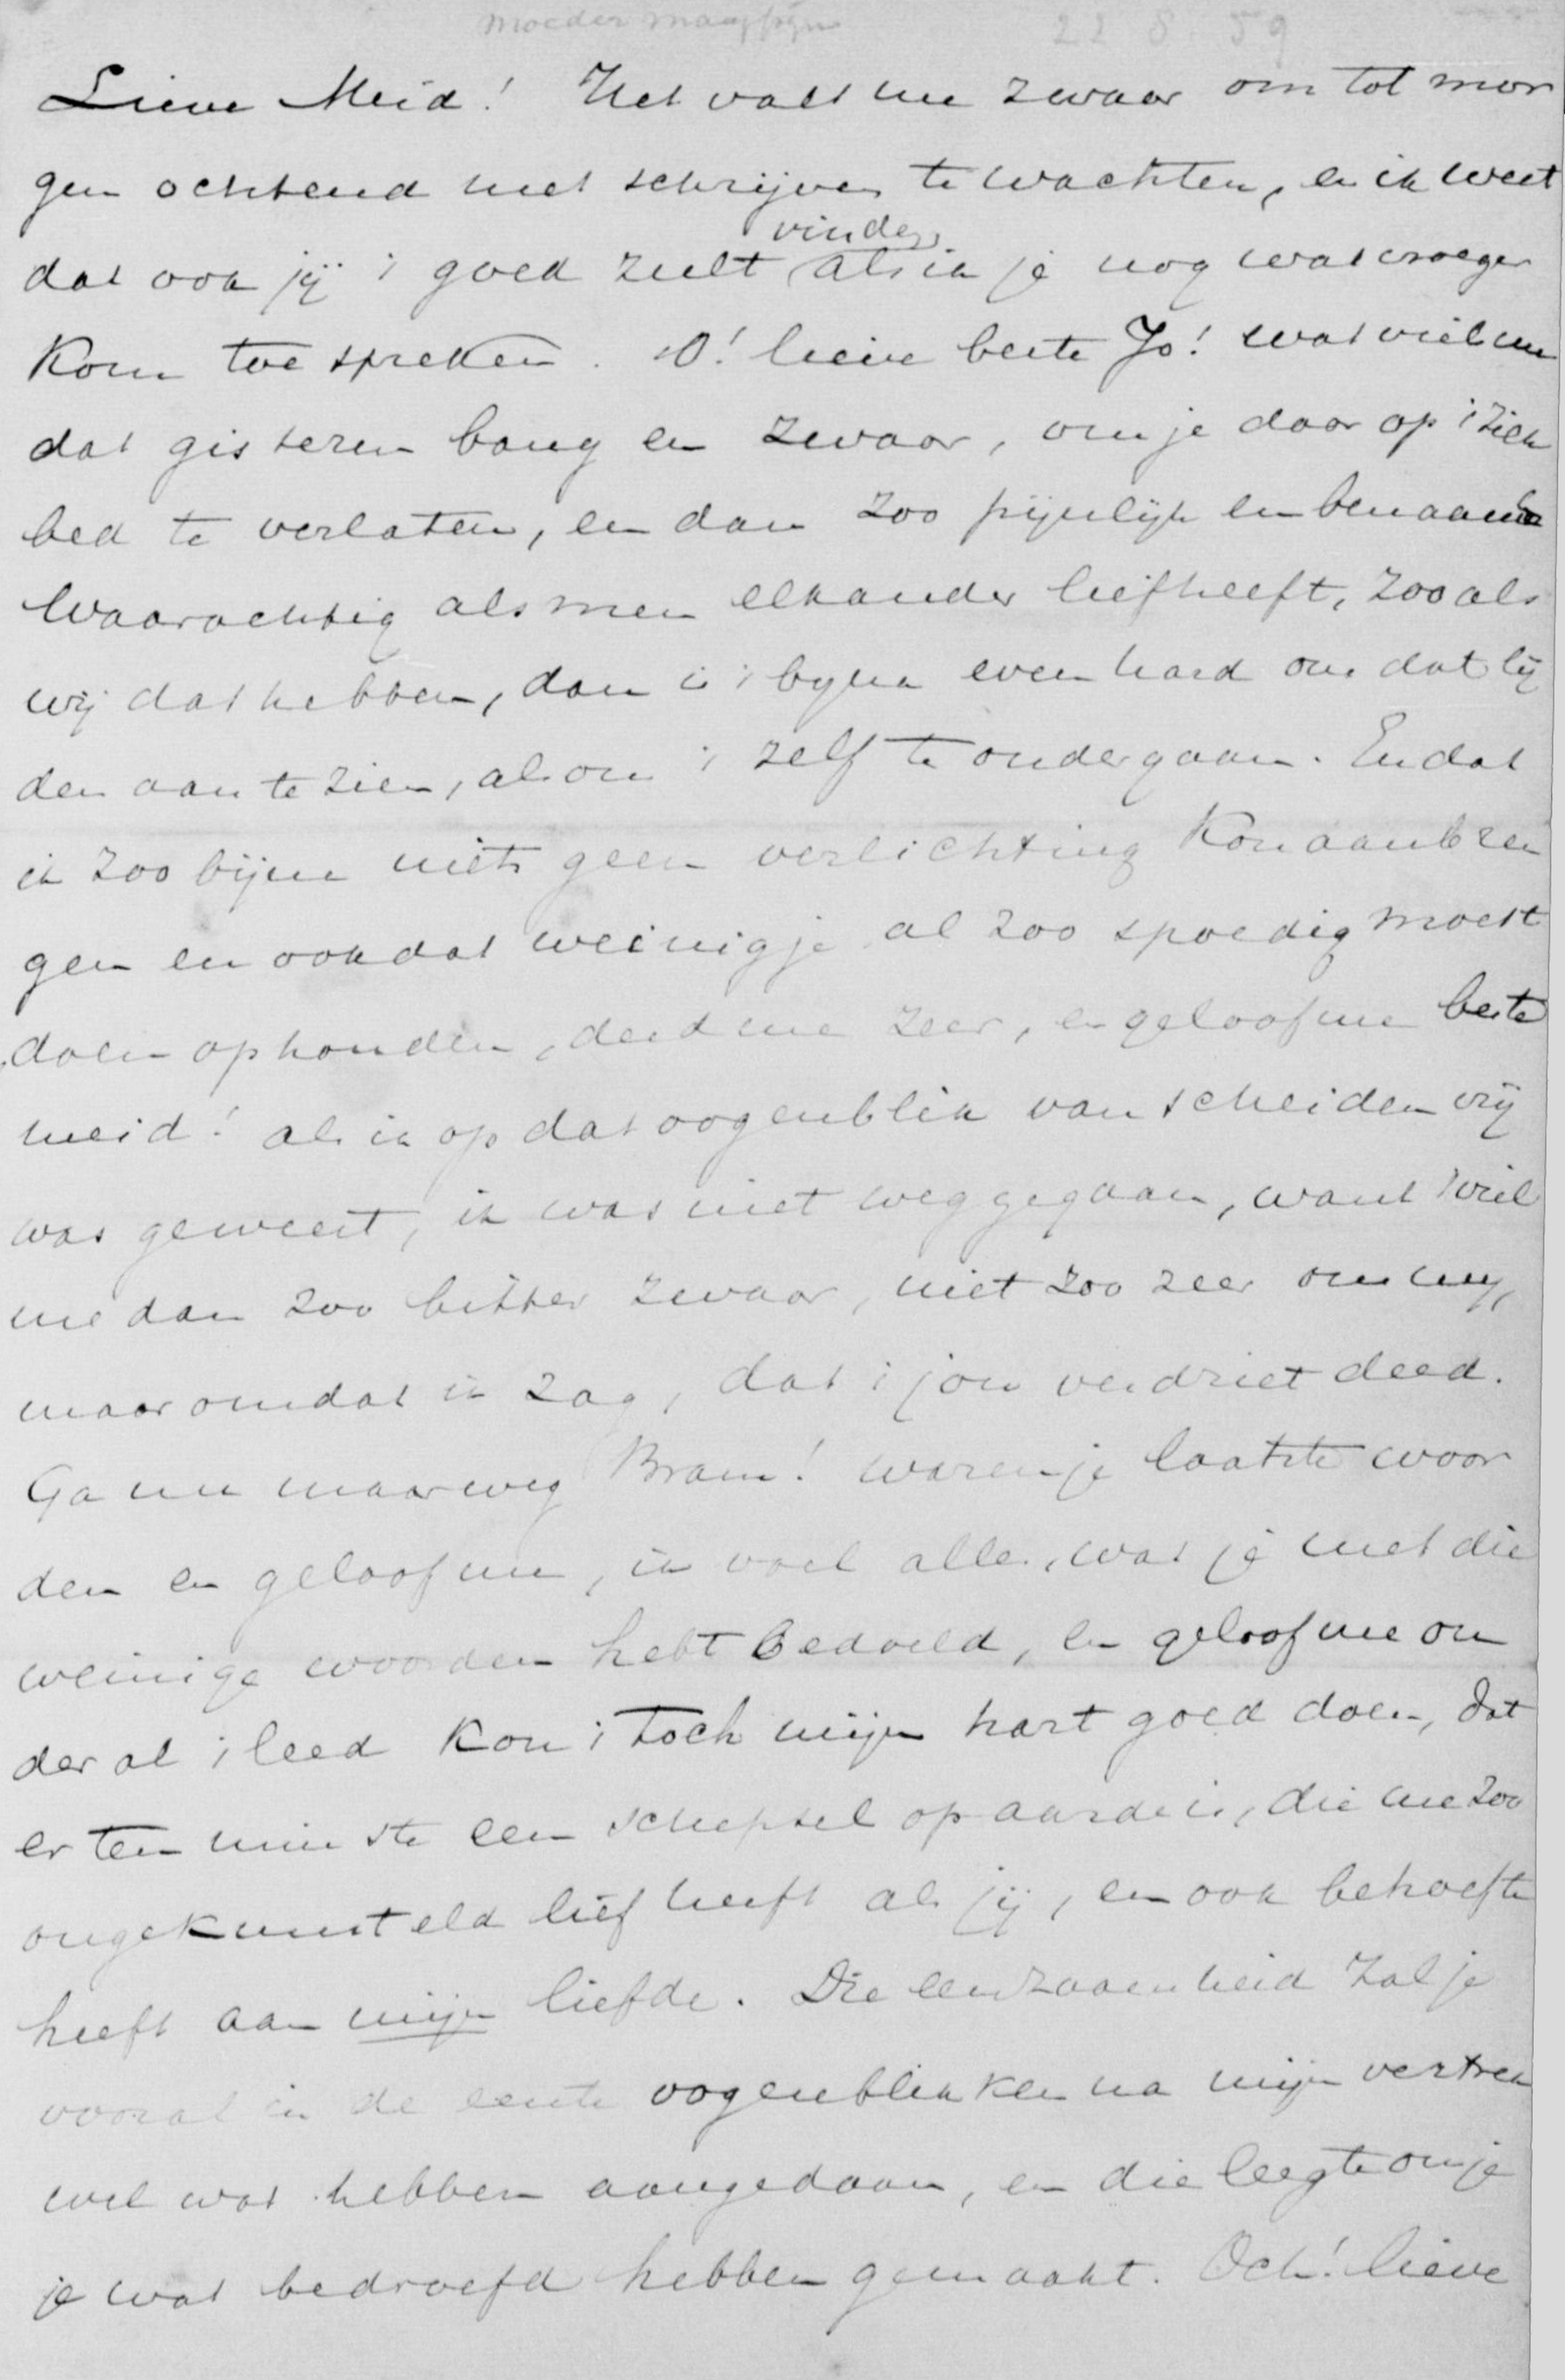 Moeder maagpijn 22 8 59
Lieve Meid! Het valt me zwaar om tot mor
gen ochtend met schrijven te wachten, en ik weet
vinden
dat ook jij 't goed zult als ik je nog wat vroeger
kom toespreken. O! lieve beste Jo! wat viel me
dat gisteren bang en zwaar, om je daar op 't ziek
bed te verlaten, en dan zoo pijnlijk en benaauwd
Waarachtig als men elkander liefheeft, zooals
wij dat hebben, dan is 't byna even hard om dat lij
den aan te zien, als om 't zelf te ondergaan. En dat
ik zoo bijna niets geen verlichting kon aanbren
gen en ook dat weinigje al zoo spoedig moest
doen ophouden, deed me zeer, en geloof me beste
meid! als ik op dat oogenblik van scheiden vrij
was geweest, ik was niet weggegaan, want 't viel
me dan zoo bitter zwaar, niet zoo zeer om my,
maar omdat ik zag, dat 't jou verdriet deed.
Ga nu maar weg Bram! waren je laatste woor
den en geloof me, ik voel alles, wat je met die
weinige woorden hebt bedoeld, en geloof me on
der al 't leed kon 't toch mijn hart goed doen, dat
er ten minste een schepsel op aarde is, die me zoo
ongekunsteld lief heeft als jij, en ook behoefte
heeft aan mijn liefde. Die eenzaamheid zal je
vooral in de eerste oogenblikken na mijn vertrek
wel wat hebben aangedaan, en die leegte om je
je wat bedroefd hebben gemaakt. Och! lieve